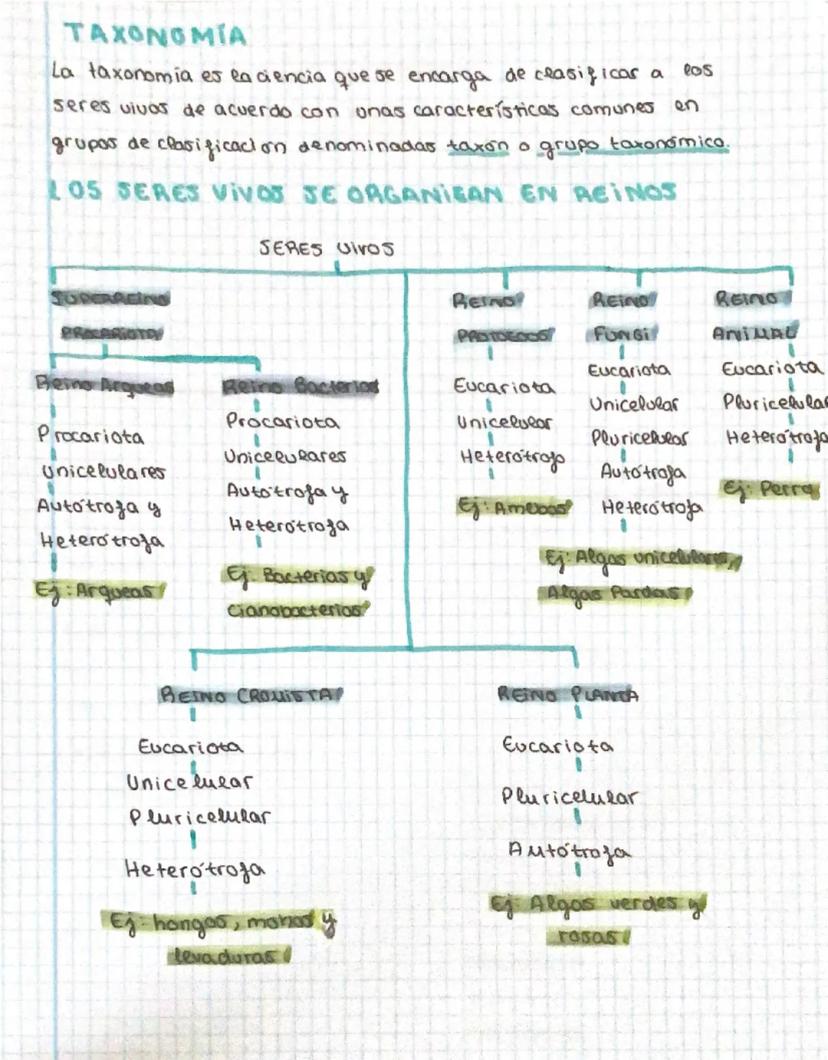 TAXONOMÍA
La taxonomía es la ciencia que se encarga de clasificar a los
seres vivos de acuerdo con unas características comunes en
grupos de clasificación denominadas taxón o grupo taxonómico.
LOS SERES VIVOS SE ORGANISAN EN REINOS
SERES VIVOS
SUPERREINO
PROCARIOTA
Reino Arqueas
Procariota
Unicelulares
Autótrofa y
Heterótrofa
Ej: Arqueas
Reino Bacterias
Procariota
Unicelulares
Autótrofa y
Heterótrofa
Ej: Bacterias y
Cianobacterias
REINO
PROTOZOOS
Eucariota
Unicelular
Heterótrofo
Ej: Amebas
REINO
FUNGI
Eucariota
Unicelular
Pluricelular
Autótrofa
Heterótrofa
Ej: Algas unicelulares,
Algas Pardas
REINO
ANIMAL
Eucariota
Pluricelular
Heterótrofa
Ej: Perro
REINO CROMISTA
Eucariota
Unicelular
Pluricelular
Heterótrofa
Ej: hongos, mohos y
levaduras
REINO PLANTA
Eucariota
Pluricelular
Autótrofa
Ej: Algas verdes y
rosas